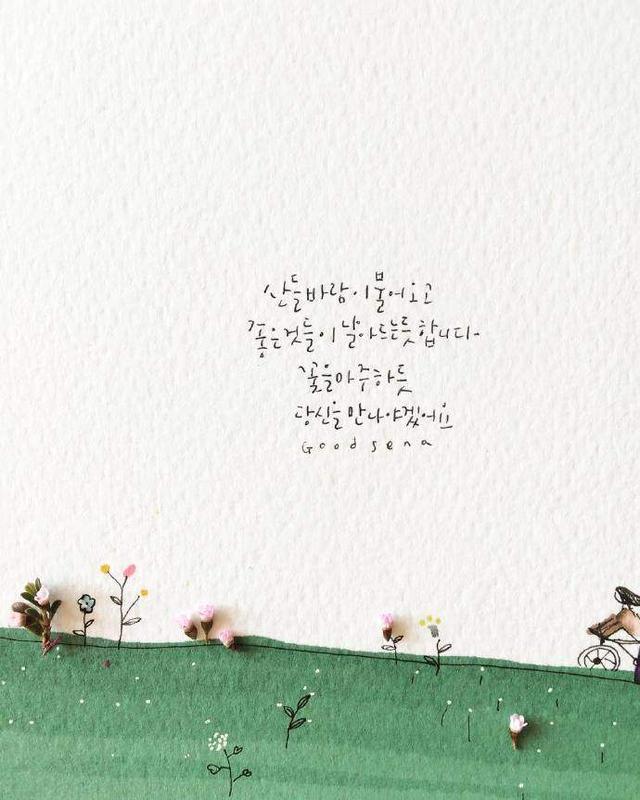 산들바람이불어오고
좋은것들이날아드는듯합니다-
꽃을마주하듯
당신을만나야겠어요
Goodsena